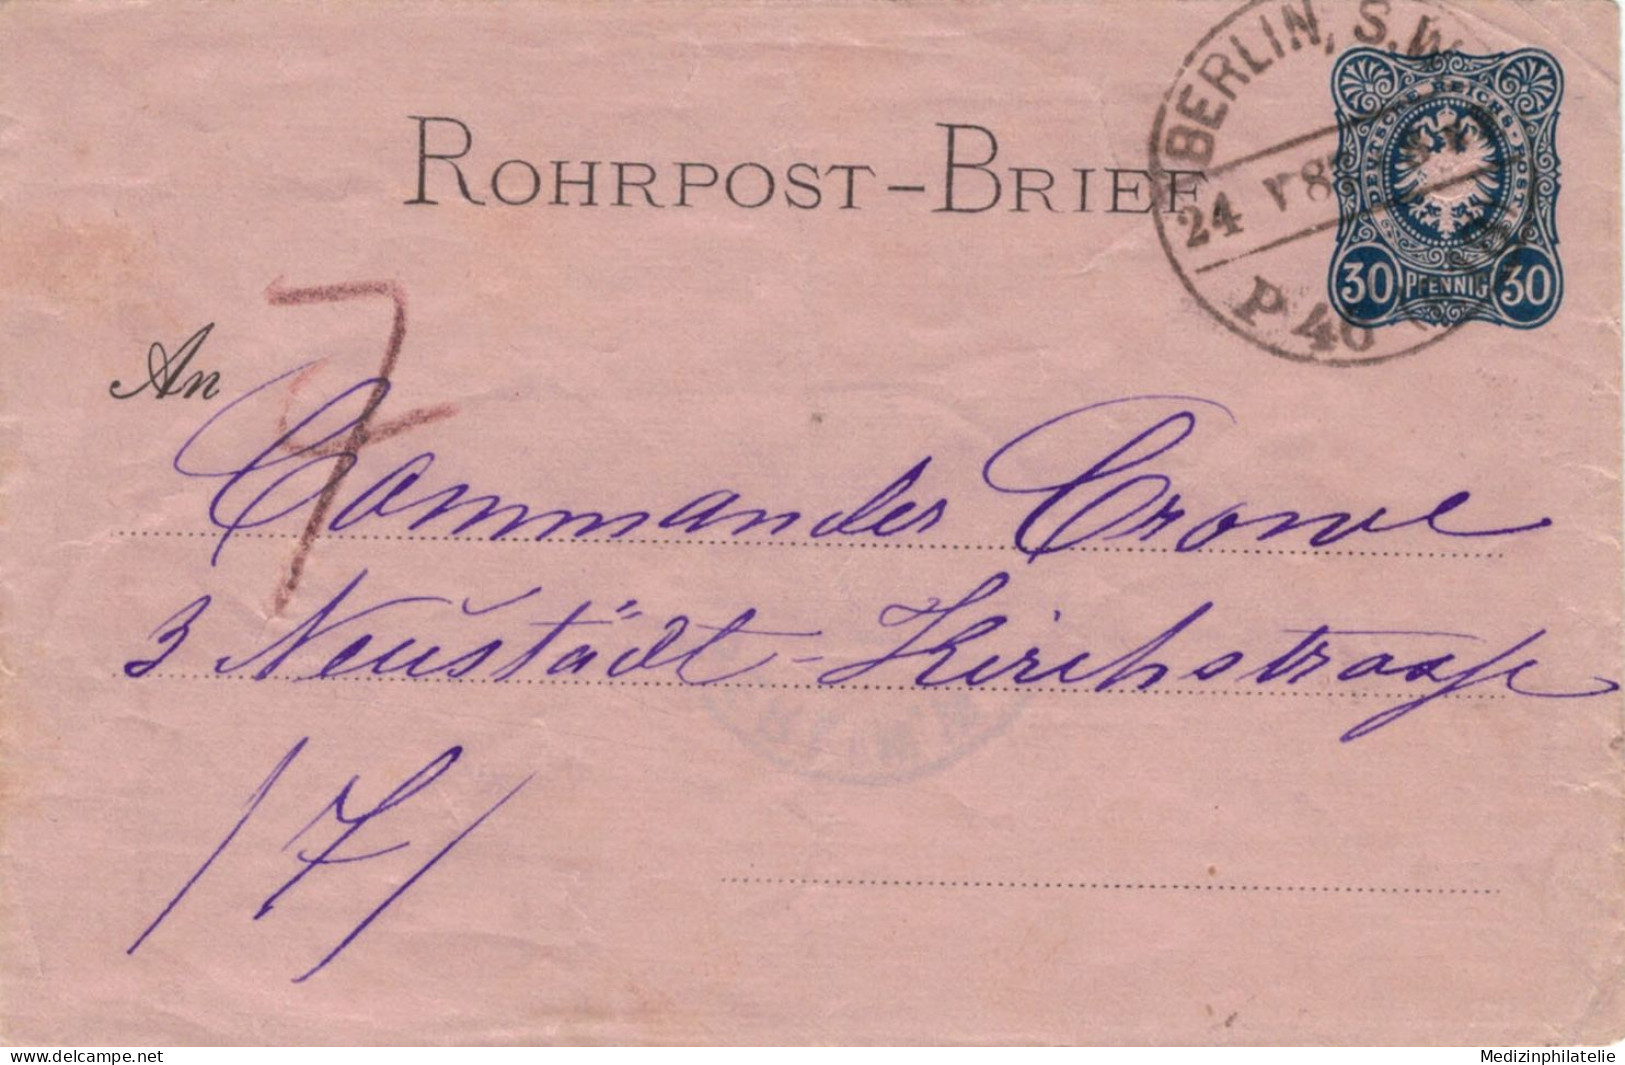 ROHRPOST-BRIEF
BERLIN, S.W.
24 V 8
P 46
DEUTSCHE REICHS-POST
30 PFENNIG 30
7
An
Commander Crowe
3 Neustädt-Kirchstrasse
/7/
www.delcampe.net
Medizinphilatelie